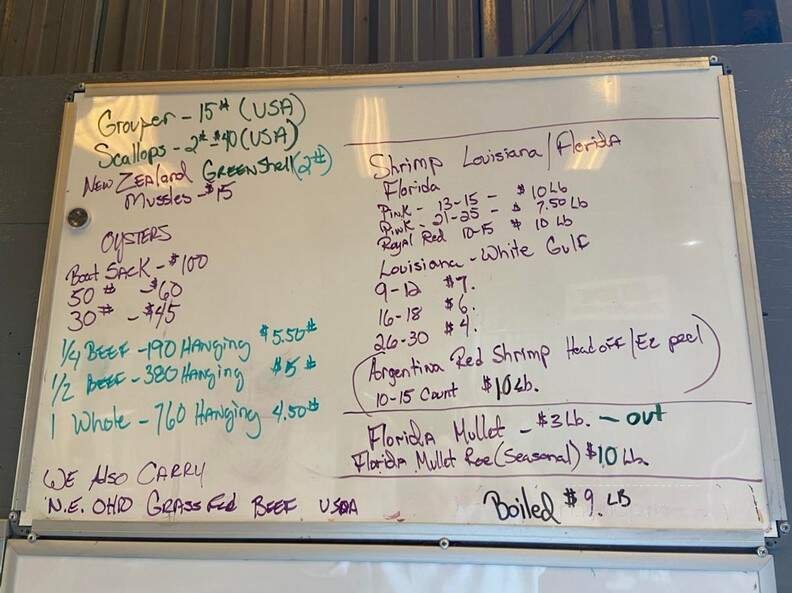 Grouper - 15# (USA)
Scallops - 2# - $40 (USA)
NEW ZEALAND GREENSHELL (2#)
Mussles - $15
OYSTERS
Boat SACK - $100
50# - $60
30# - $45
1/4 BEEF - 190 HANGING $5.50#
1/2 BEEF - 380 HANGING $5#
1 Whole - 760 HANGING 4.50#
WE Also CARRY
N.E. OHIO GRASS Fed BEEF USDA
Shrimp Louisiana / Florida
Florida
Pink - 13-15 - $10 Lb
Pink - 21-25 - $7.50 Lb
Royal Red 10-15 $10 Lb
Louisiana - White Gulf
9-12 $7.
16-18 $6.
26-30 $4.
(Argentina Red Shrimp Head off / Ez peel
10-15 Count $10 Lb.)
Florida Mullet - $3 Lb. - out
Florida Mullet Roe (Seasonal) $10 Lb
Boiled $9. LB